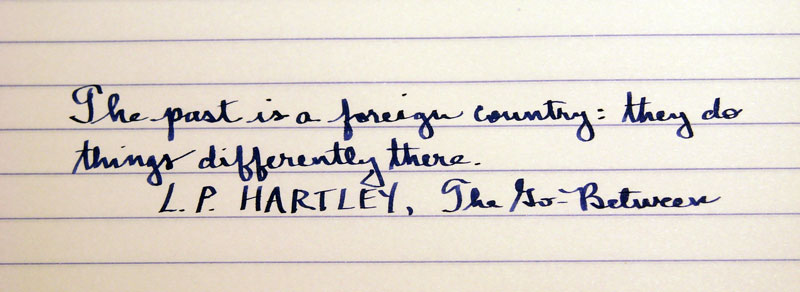 The past is a foreign country: they do
things differently there.
L.P. HARTLEY, The Go-Between